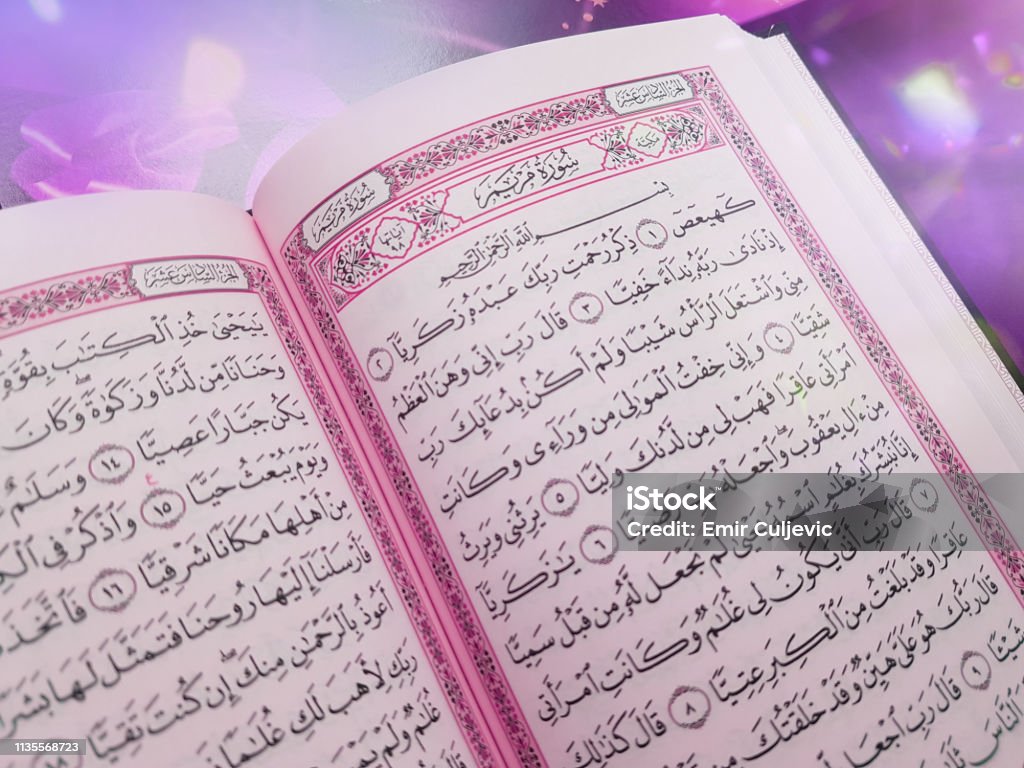 الجزء السادس عشر
سورة مريم
مكية
سُورَةُ مَرْيَمَ
آياتها ٩٨
بِسْمِ ٱللَّهِ ٱلرَّحْمَٰنِ ٱلرَّحِيمِ
كٓهيعٓصٓ ١ ذِكْرُ رَحْمَتِ رَبِّكَ عَبْدَهُۥ زَكَرِيَّآ ٢
إِذْ نَادَىٰ رَبَّهُۥ نِدَآءً خَفِيًّا ٣ قَالَ رَبِّ إِنِّى وَهَنَ ٱلْعَظْمُ
مِنِّى وَٱشْتَعَلَ ٱلرَّأْسُ شَيْبًا وَلَمْ أَكُنۢ بِدُعَآئِكَ رَبِّ
شَقِيًّا ٤ وَإِنِّى خِفْتُ ٱلْمَوَٰلِىَ مِن وَرَآءِى وَكَانَتِ
ٱمْرَأَتِى عَاقِرًا فَهَبْ لِى مِن لَّدُنكَ وَلِيًّا ٥ يَرِثُنِى وَيَرِثُ
مِنْ ءَالِ يَعْقُوبَ ۖ وَٱجْعَلْهُ ٦ يَٰزَكَرِيَّآ
إِنَّا نُبَشِّرُكَ بِغُلَٰمٍ ٱسْمُهُۥ يَحْيَىٰ لَمْ نَجْعَل لَّهُۥ مِن قَبْلُ سَمِيًّا
٧ قَالَ رَبِّ أَنَّىٰ يَكُونُ لِى غُلَٰمٌ وَكَانَتِ ٱمْرَأَتِى
عَاقِرًا وَقَدْ بَلَغْتُ مِنَ ٱلْكِبَرِ عِتِيًّا ٨ قَالَ كَذَٰلِكَ
قَالَ رَبُّكَ هُوَ عَلَىَّ هَيِّنٌ وَقَدْ خَلَقْتُكَ
شَيْـًٔا ٩ قَالَ رَبِّ ٱجْعَل
ٱلنَّاسَ
الجزء السادس عشر
يَٰيَحْيَىٰ خُذِ ٱلْكِتَٰبَ بِقُوَّةٍ
وَحَنَانًا مِّن لَّدُنَّا وَزَكَوٰةً ۖ وَكَانَ
يَكُن جَبَّارًا عَصِيًّا ١٤ وَسَلَٰمٌ
وَيَوْمَ يُبْعَثُ حَيًّا ١٥ وَٱذْكُرْ فِى
مِنْ أَهْلِهَا مَكَانًا شَرْقِيًّا ١٦
فَأَرْسَلْنَآ إِلَيْهَا رُوحَنَا فَتَمَثَّلَ لَهَا
أَعُوذُ بِٱلرَّحْمَٰنِ مِنكَ إِن كُنتَ تَقِيًّا ١٨
رَبِّكِ لِأَهَبَ لَكِ غُلَٰمًا
غُلَٰمٌ وَلَمْ
iStock
Credit: Emir Culjevic
1135568723